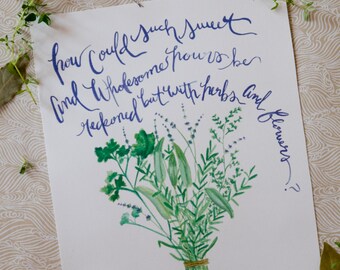 how could such sweet
and wholesome hours be
reckoned but with herbs and flowers?